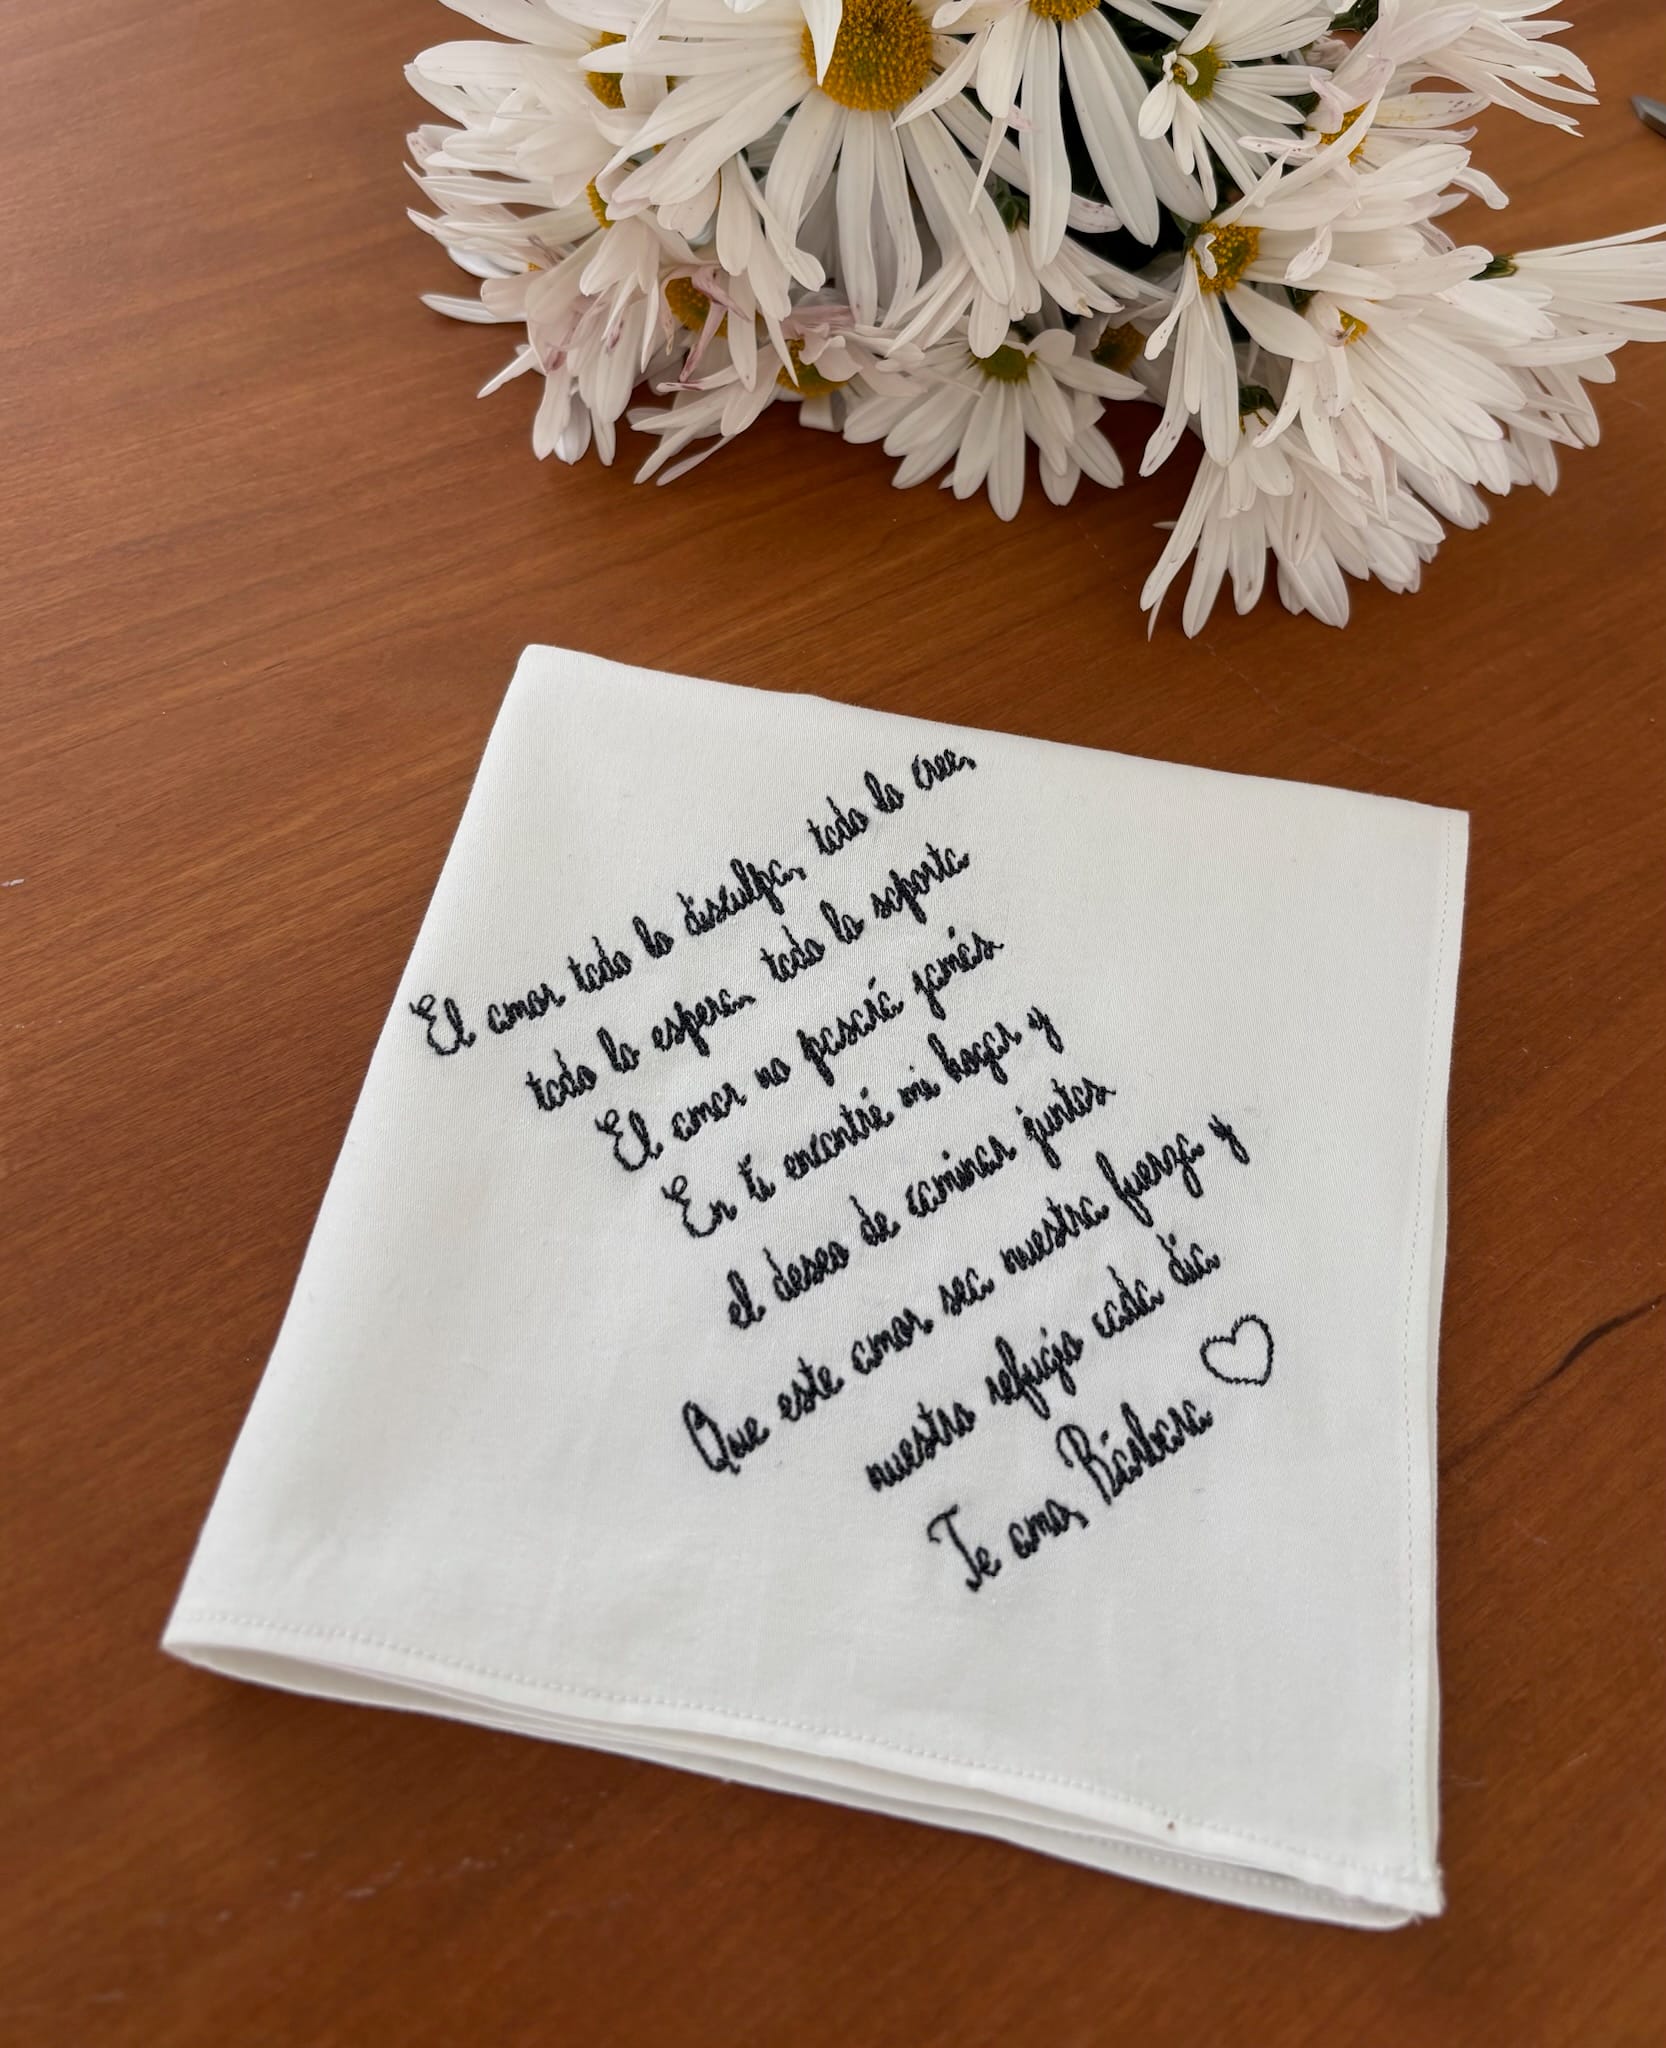 El amor todo lo disculpa, todo lo cree,
todo lo espera, todo lo soporta
El amor no pasará jamás
En ti encontré mi hogar y
el deseo de caminar juntos
Que este amor sea nuestra fuerza y
nuestro refugio cada día
Te amo, Bárbara